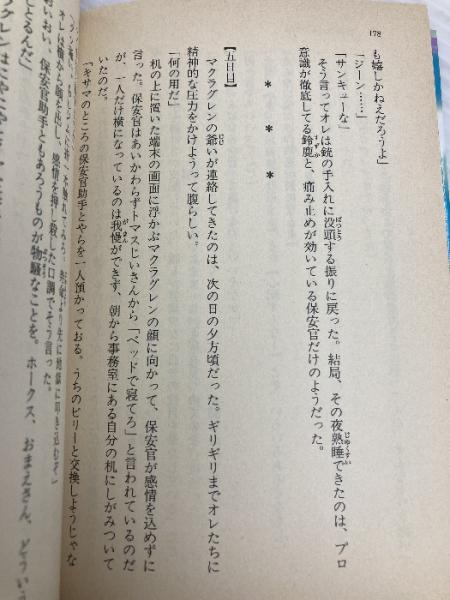 178
も嬉しかねえだろうよ」
「ジーン……」
「サンキューな」
そう言ってオレは銃の手入れに没頭する振りに戻った。結局、その夜熟睡できたのは、プロ
意識が徹底してる鈴鹿と、痛み止めが効いている保安官だけのようだった。
＊　＊　＊
【五日目】
マクラグレンの爺いが連絡してきたのは、次の日の夕方頃だった。ギリギリまでオレたちに
精神的な圧力をかけようって腹らしい。
「何の用だ」
机の上に置いた端末の画面に浮かぶマクラグレンの顔に向かって、保安官が感情を込めずに
言った。保安官はあいかわらずトマスじいさんから「ベッドで寝てろ」と言われているのだ
が、一人だけ横になっているのは我慢ができず、朝から事務室にある自分の机にしがみついて
いたのだ。
「キサマのところの保安官助手とやらを一人預かっておる。うちのビリーと交換しようじゃな
オレは横から顔を出し、感情を押し殺した口調でそう言った。
「おいおい、保安官助手ともあろうものが物騒なことを。ホークス、おまえさん、どういう